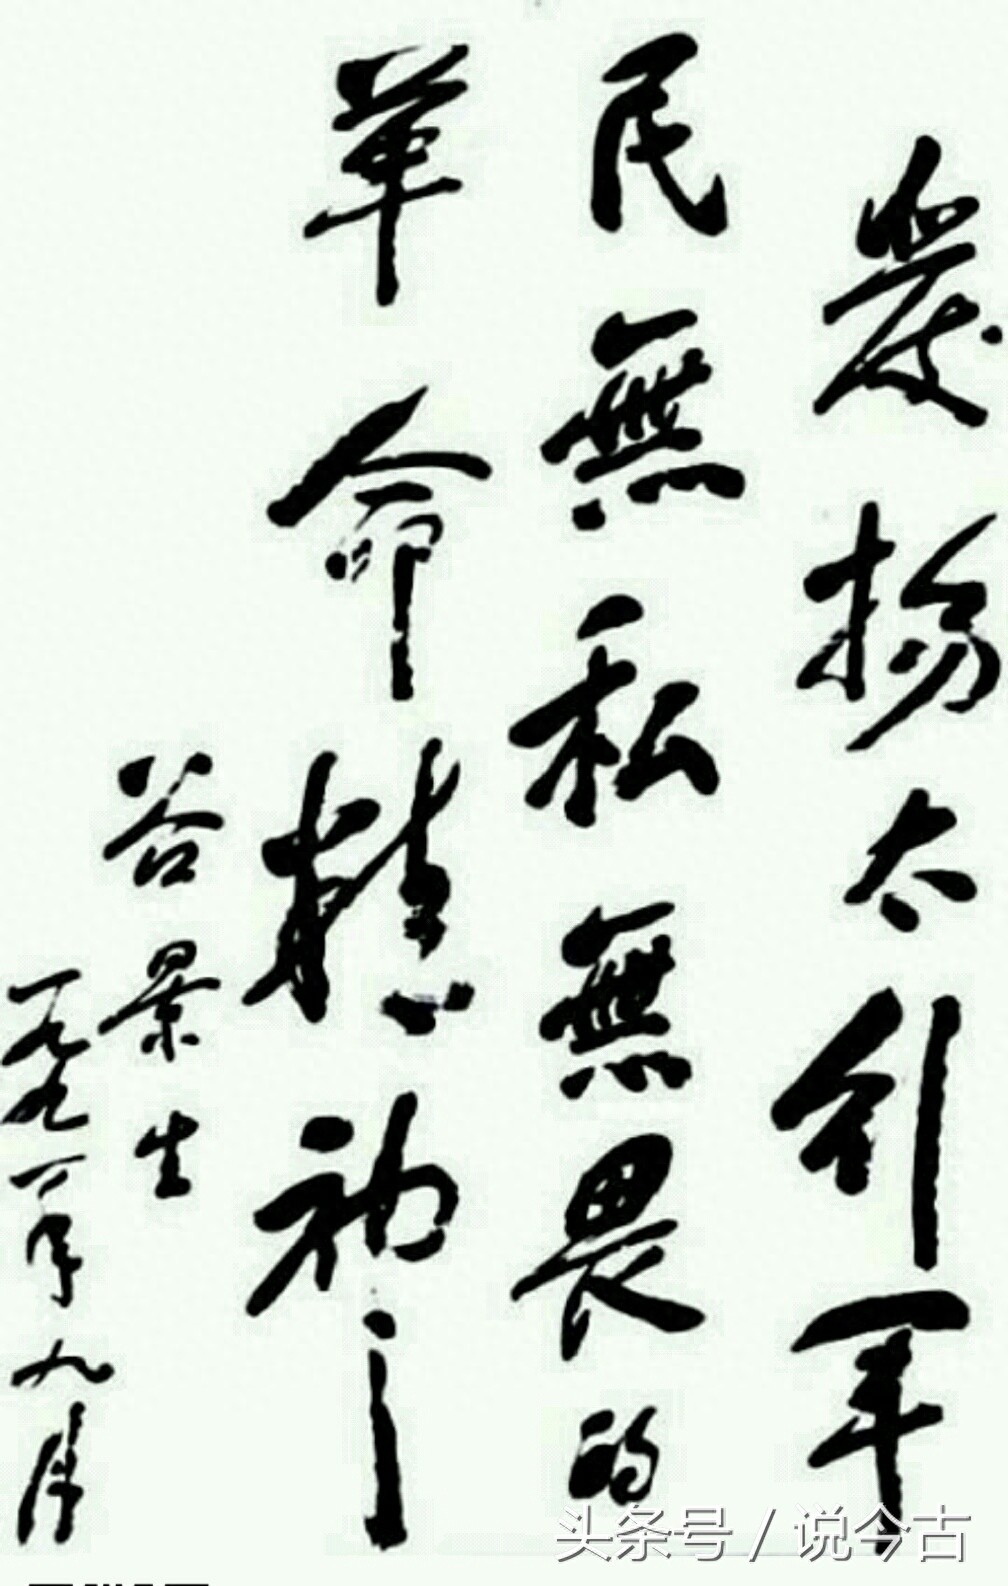 發揚太行军
民無私無畏的
革命精神！
谷景生
一九九一年九月
头条号 / 说今古